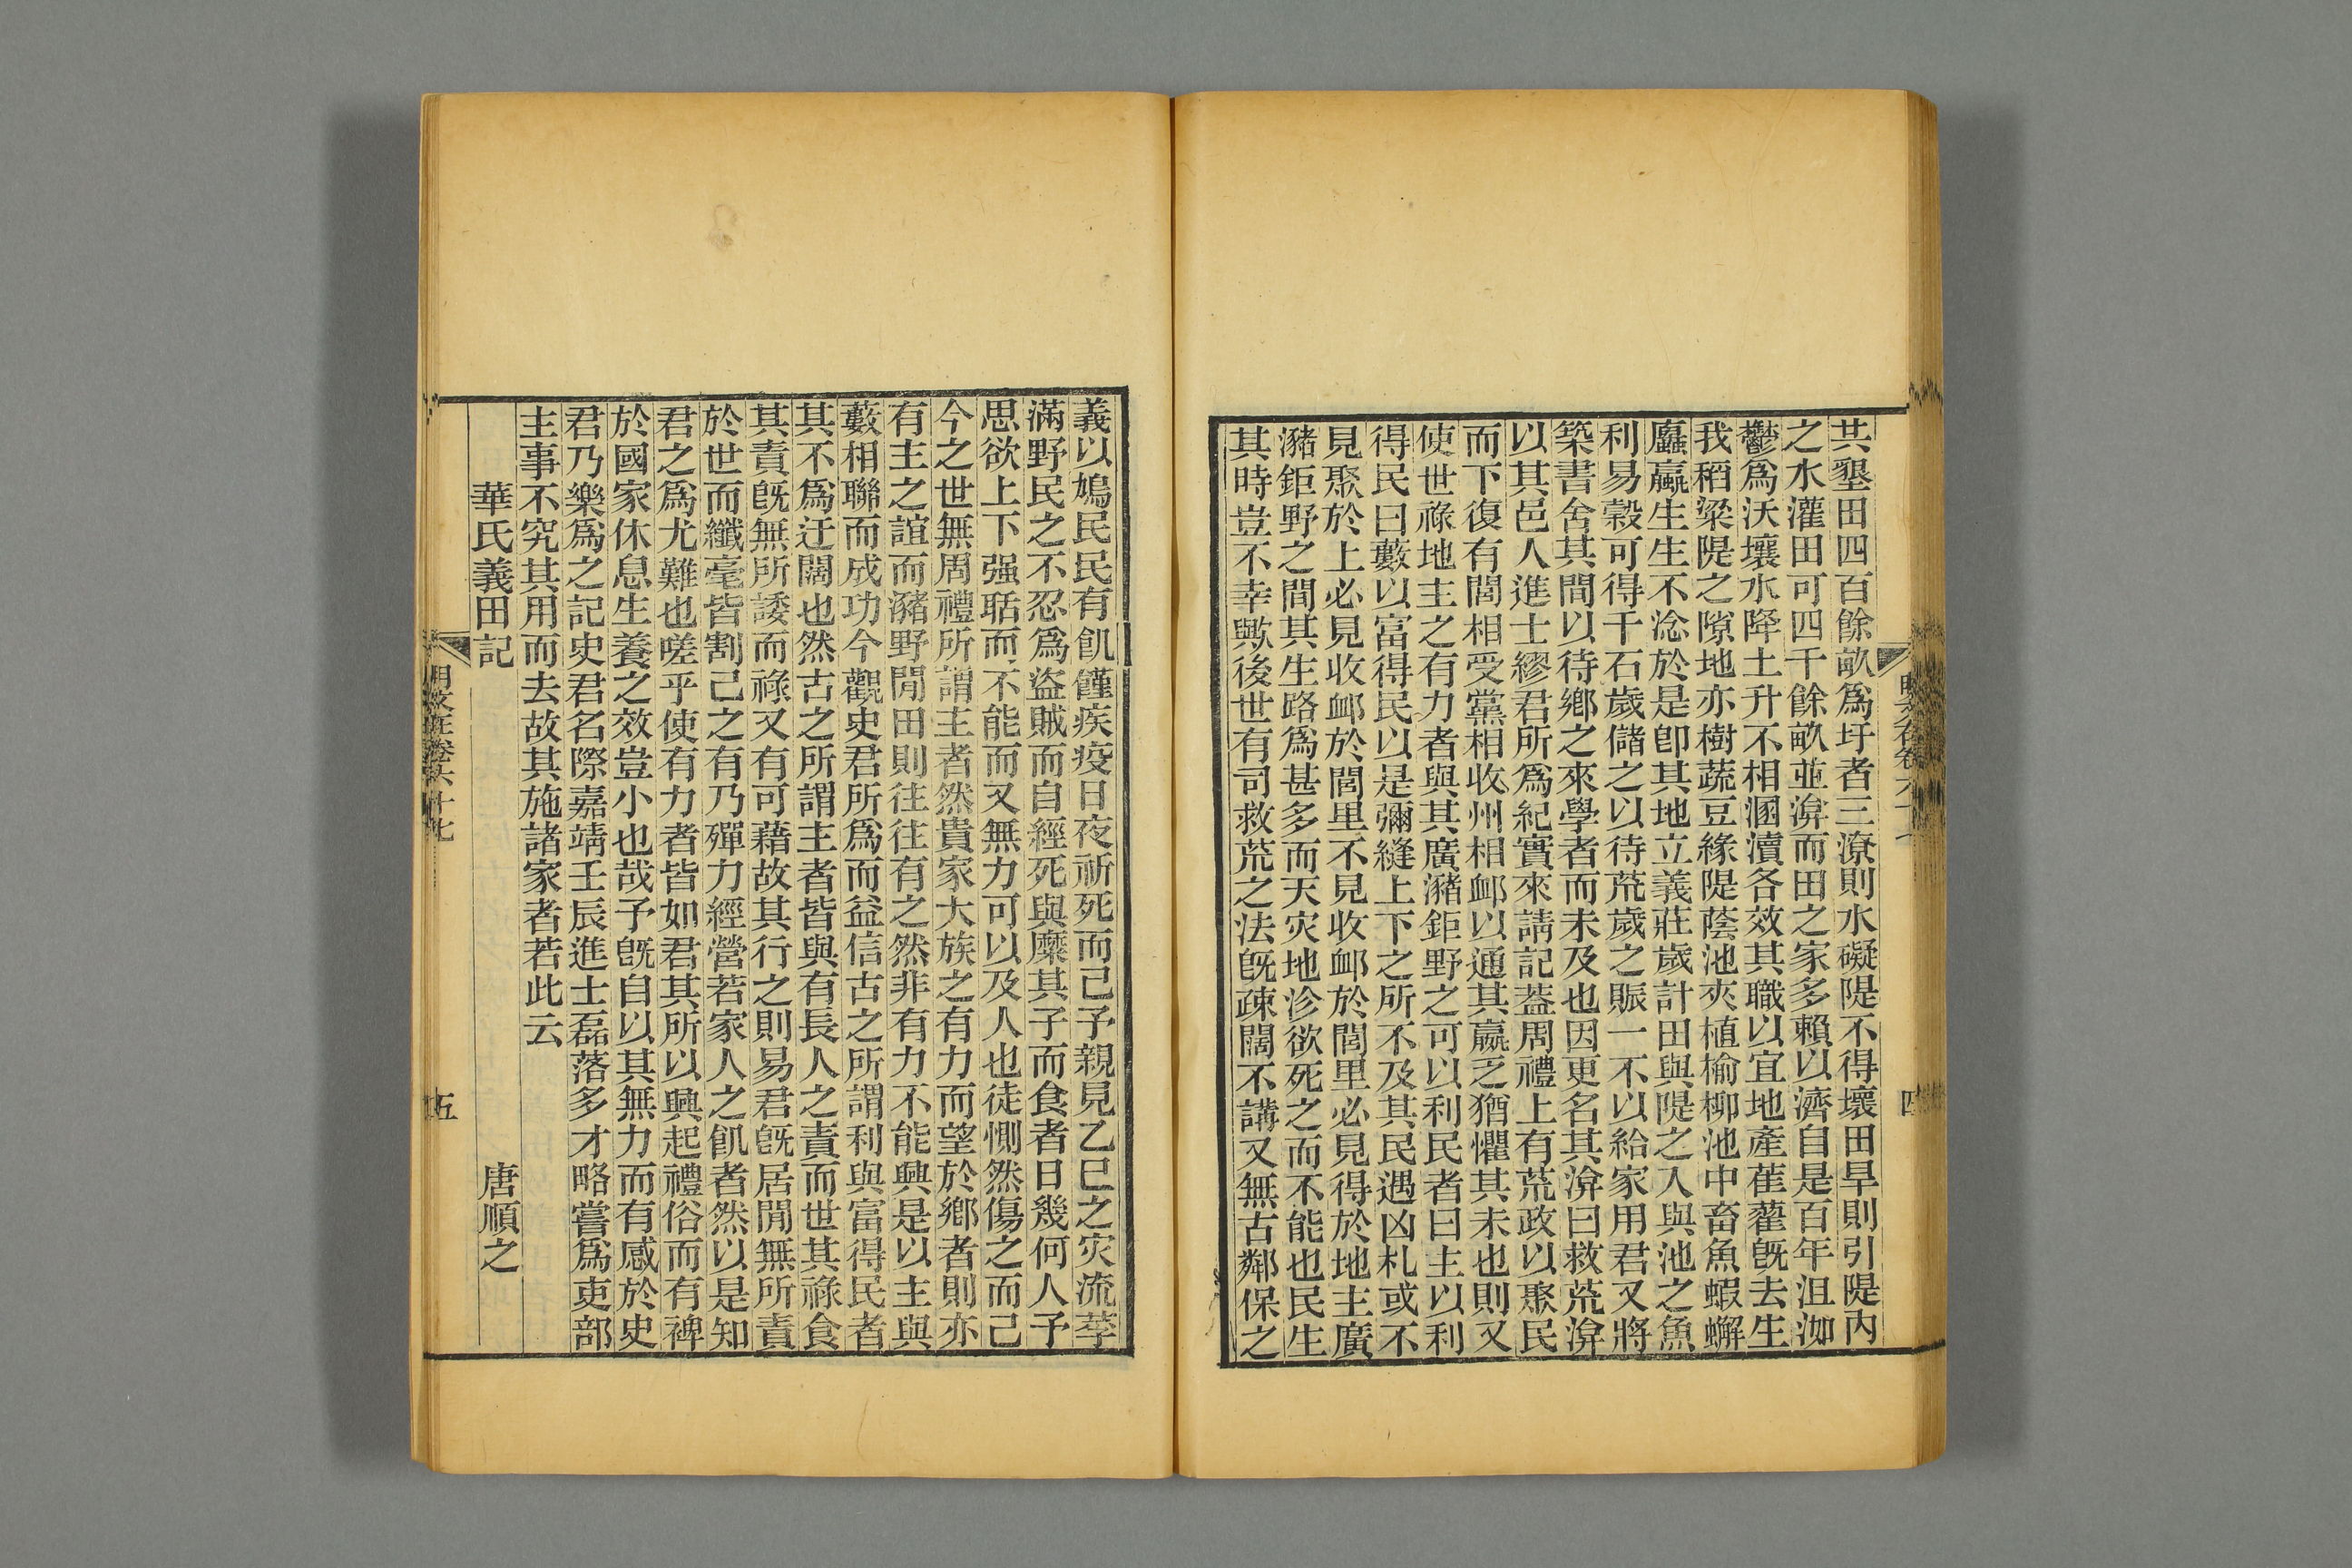 共墾田四百餘畝爲圩者三潦則水礙隄不得壞田旱則引隄內
之水灌田可四千餘畝並渰而田之家多賴以濟自是百年沮洳
鬱爲沃壤水降土升不相溷瀆各效其職以宜地產萑雚旣去生
我稻粱隄之隙地亦樹蔬豆緣隄蔭池夾植榆柳池中畜魚蝦蠏
蠯蠃生生不淰於是卽其地立義莊歲計田與隄之入與池之魚
利易穀可得千石歲儲之以待荒歲之賑一不以給家用君又將
築書舍其間以待鄉之來學者而未及也因更名其渰曰救荒渰
以其邑人進士繆君所爲紀實來請記蓋周禮上有荒政以聚民
而下復有閭相受黨相收州相卹以通其贏乏猶懼其未也則又
使世祿地主之有力者與其廣瀦鉅野之可以利民者曰主以利
得民曰藪以富得民以是彌縫上下之所不及其民遇凶札或不
見聚於上必見收卹於閭里不見收卹於閭里必見得於地主廣
瀦鉅野之間其生路爲甚多而天灾地沴欲死之而不能也民生
其時豈不幸歟後世有司救荒之法旣疎闊不講又無古鄰保之
四
義以鳩民民有飢饉疾疫日夜祈死而已予親見乙巳之灾流莩
滿野民之不忍爲盜賊而自經死與糜其子而食者日幾何人予
思欲上下强聒而不能而又無力可以及人也徒惻然傷之而已
今之世無周禮所謂主者然貴家大族之有力而望於鄉者則亦
有主之誼而瀦野閒田則往往有之然非有力不能興是以主與
藪相聯而成功今觀史君所爲而益信古之所謂利與富得民者
其不爲迂闊也然古之所謂主者皆與有長人之責而世其祿食
其責旣無所諉而祿又有可藉故其行之則易君旣居閒無所責
於世而纖毫皆割己之有乃殫力經營若家人之飢者然以是知
君之爲尤難也嗟乎使有力者皆如君其所以興起禮俗而有裨
於國家休息生養之效豈小也哉予旣自以其無力而有感於史
君乃樂爲之記史君名際嘉靖壬辰進士磊落多才略嘗爲吏部
主事不究其用而去故其施諸家者若此云
華氏義田記 唐順之
卷六十七
五